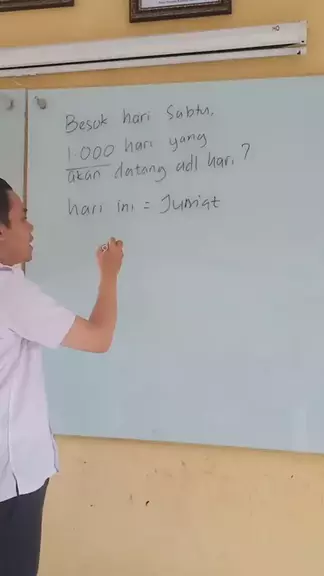 Besok hari Sabtu,
1.000 hari yang
akan datang adl hari ?
hari ini = Jumat